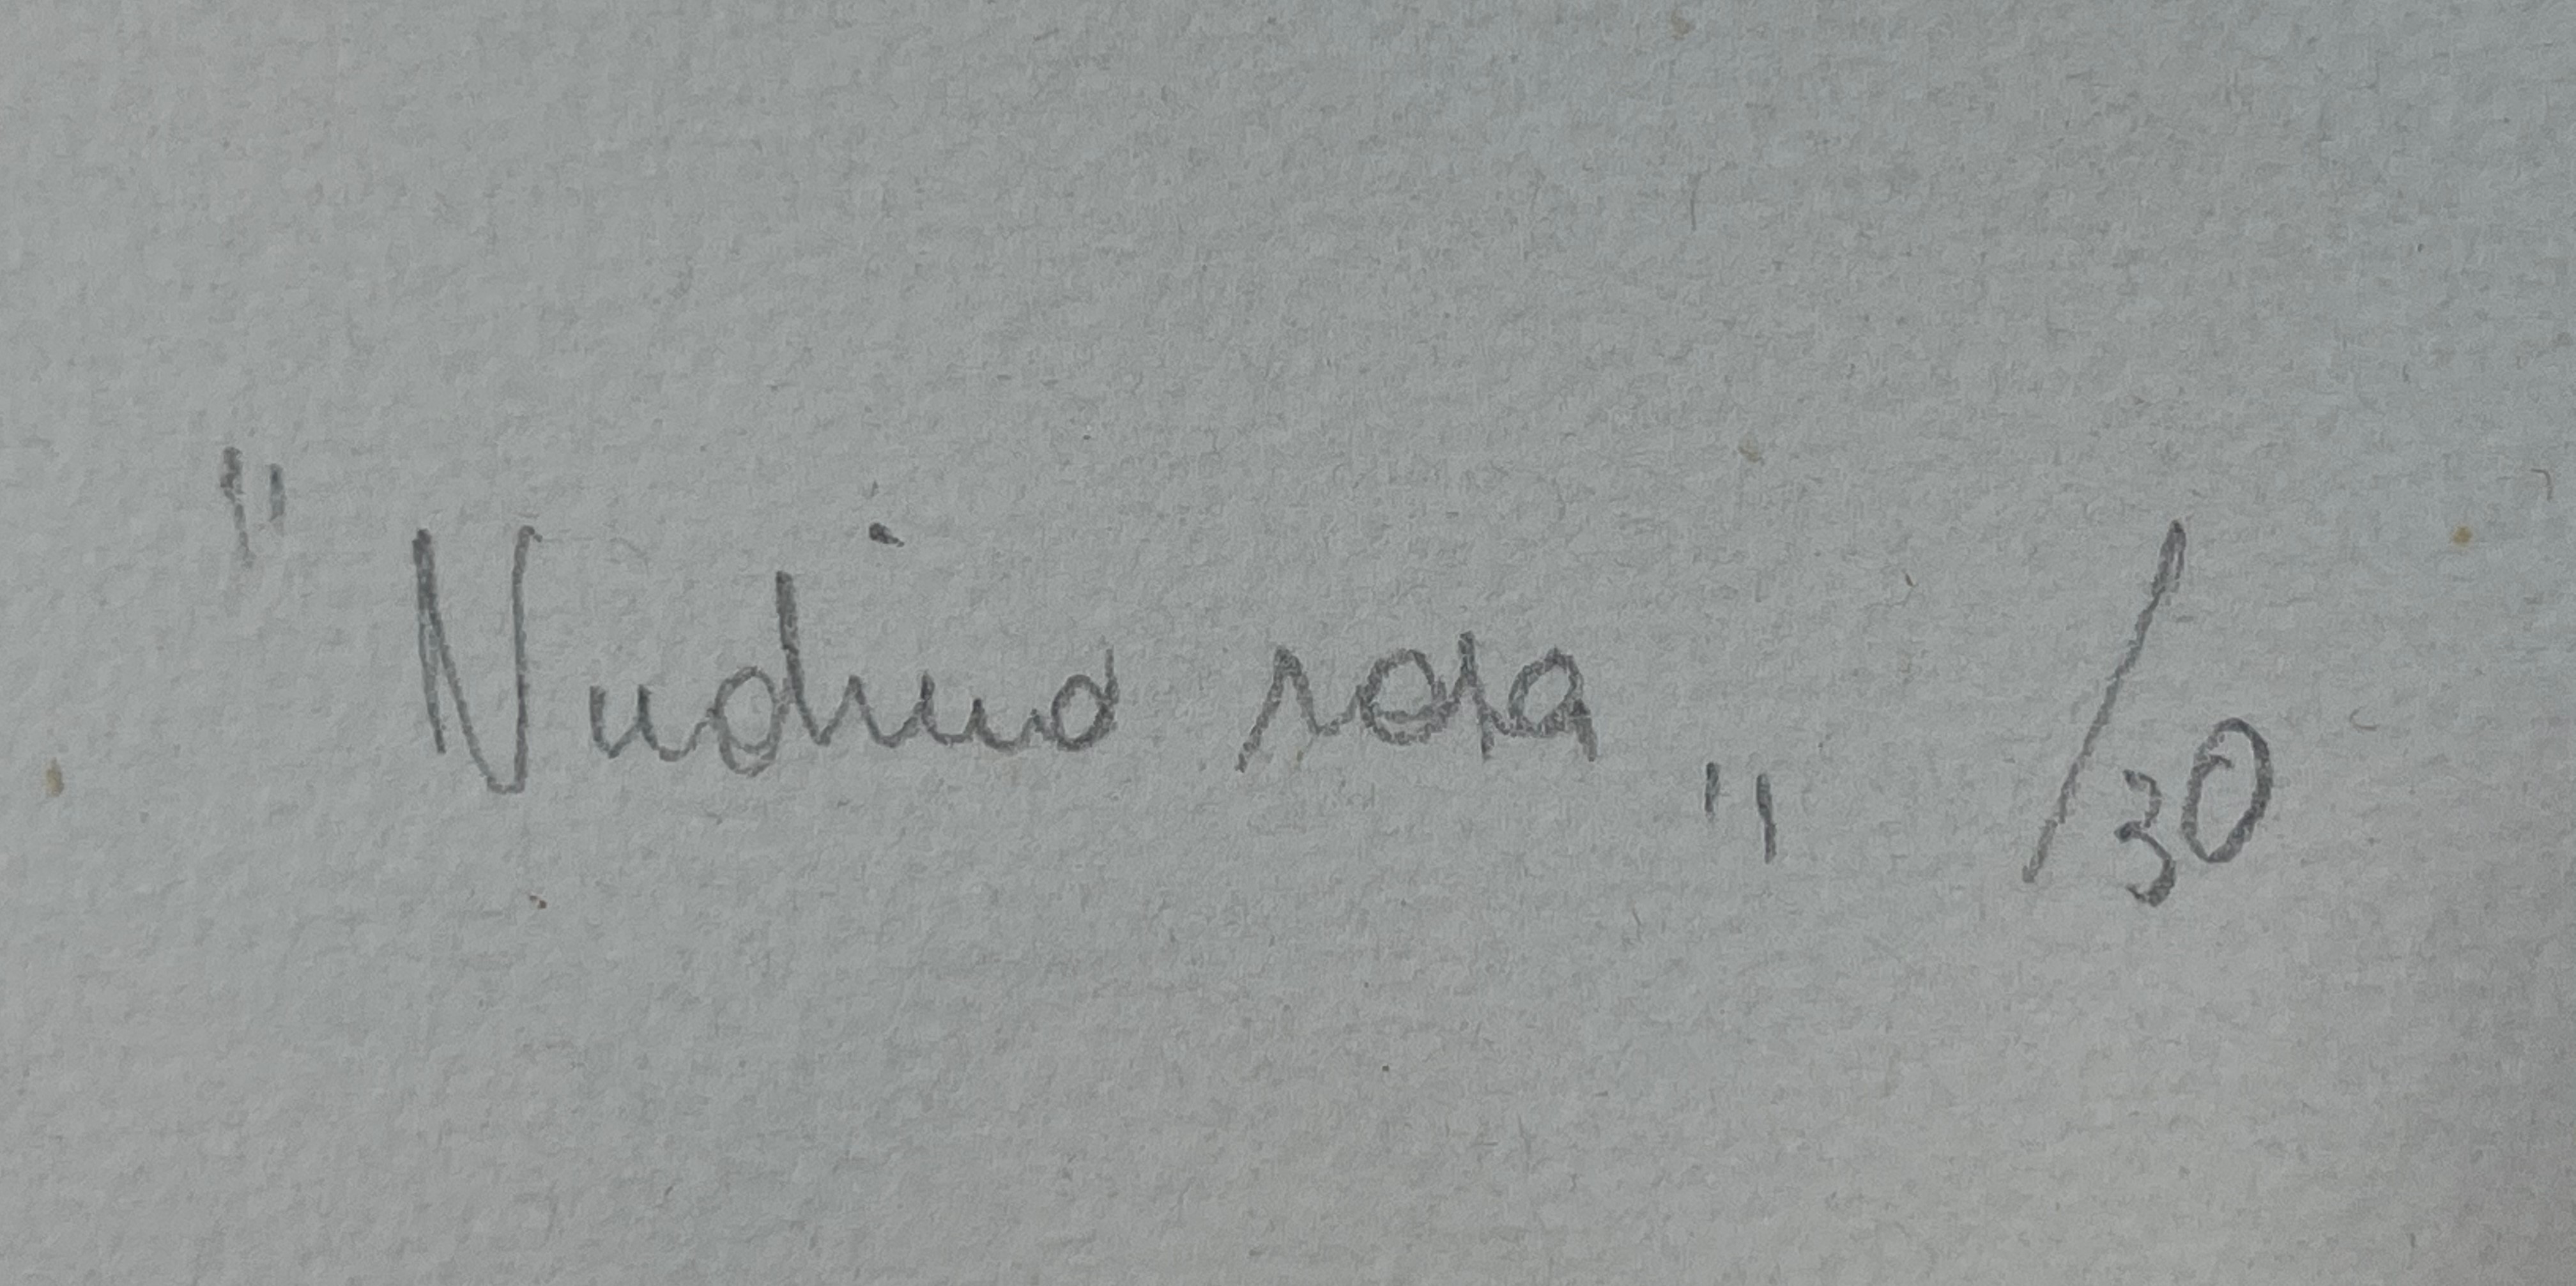 "Nudino rosa" /30